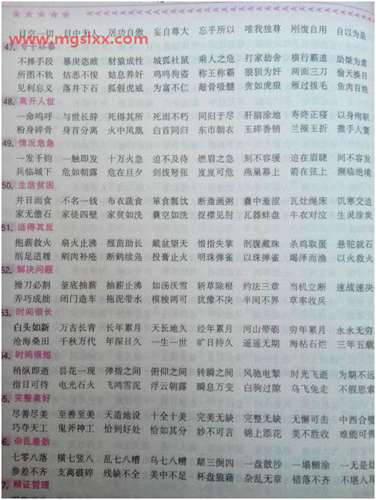 目空一切 目中无人 居功自傲 妄自尊大 忘乎所以 唯我独尊 刚愎自用 自以为是
www.mgsfxx.com
47.
不择手段 暴戾恣睢 豺狼成性 城狐社鼠 乘人之危 打家劫舍 横行霸道
所图不轨 怙恶不悛 姑息养奸 鸡鸣狗盗 称王称霸 狼狈为奸 两面三刀 偷天换日
见利忘义 落井下石 狐假虎威 为富不仁 敲骨吸髓 贪贿无艺 雁过拔毛 鱼肉百姓
48.离开人世
一命呜呼 与世长辞 死得其所 死而不朽 同归于尽 肝脑涂地 寿终正寝 以身殉
粉身碎骨 身首分离 火中凤凰 白首同归 东市朝衣 玉碎香销 兰摧玉折 撒手人
49.情况危急
一发千钧 一触即发 十万火急 迫不及待 燃眉之急 刻不容缓 迫在眉睫 间不容发
兵临城下 危在旦夕 剑拔弩张 岌岌可危 燕巢幕上 箭在弦上 濒临绝境
50.生活贫困
并日而食 不名一钱 布衣蔬食 箪食瓢饮 断齑画粥 囊中羞涩 瓦灶绳床 饥寒交迫
家无儋石 家徒四壁 家贫如洗 囊空如洗 捉襟见肘 瓦器蚌盘 牛衣对泣 生灵涂炭
51.适得其反
抱薪救火 扇火止沸 揠苗助长 戴盆望天 惜指失掌 剖腹藏珠 杀鸡取蛋 悬驼就石
削足适履 剜肉补疮 断鹤续凫 投膏止火 明珠弹雀 隋珠弹雀 竭泽而渔 以火救火
52.解决问题
操刀必割 釜底抽薪 抽薪止沸 如汤沃雪 斩草除根 约法三章 当机立断 速战速决
弄巧成拙 闭门造车 拖泥带水 模棱两可 犹豫不决 半间不界 草率收兵
53.时间很长
白头如新 万古长青 长年累月 天长地久 经年累月 河山带砺 穷年累月 水水无穷
沧海桑田 千秋万代 年深日久 一生一世 旷日持久 遥遥无期 海枯石烂 三年五载
54.时间很短
稍纵即逝 昙花一现 弹指之间 俯仰之间 转瞬之间 风驰电掣 时光飞逝 为期不远
指日可待 电光石火 飞鸿雪泥 浮云朝露 瞬息万变 白驹过隙 乌飞兔走 不假思
55.完整美好
尽善尽美 至善至美 天造地设 十全十美 完美无缺 完整无缺 无懈可击 中西合璧
巧夺天工 鬼斧神工 恰到好处 恰如其分 妙不可言 锦上添花 美不胜收 难能可
56.杂乱悬殊
七零八落 横七竖八 乱七八糟 乌七八糟 颠三倒四 一盘散沙 一塌糊涂 一无是
参差不齐 支离破碎 残缺不全 美中不足 杯盘狼藉 杂乱无章 错落不齐 不堪入
57.辩证管理